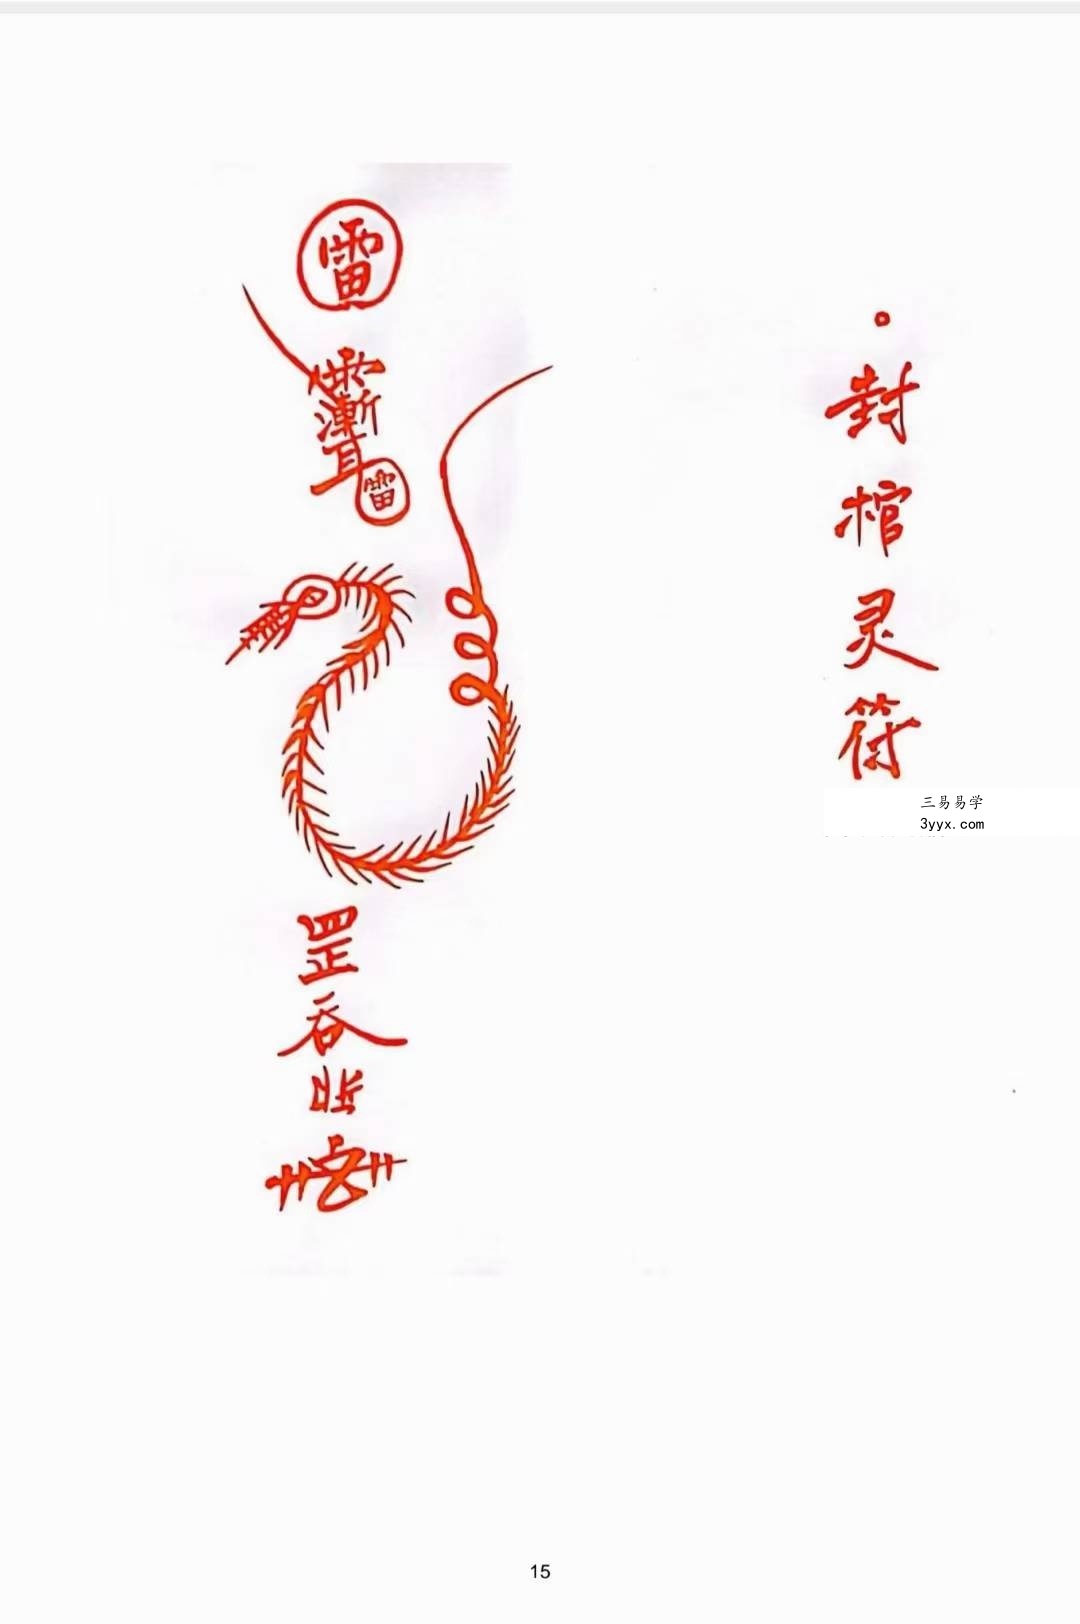 封棺灵符
三易易学
3yyx.com
雷
雷
罡
吞
15